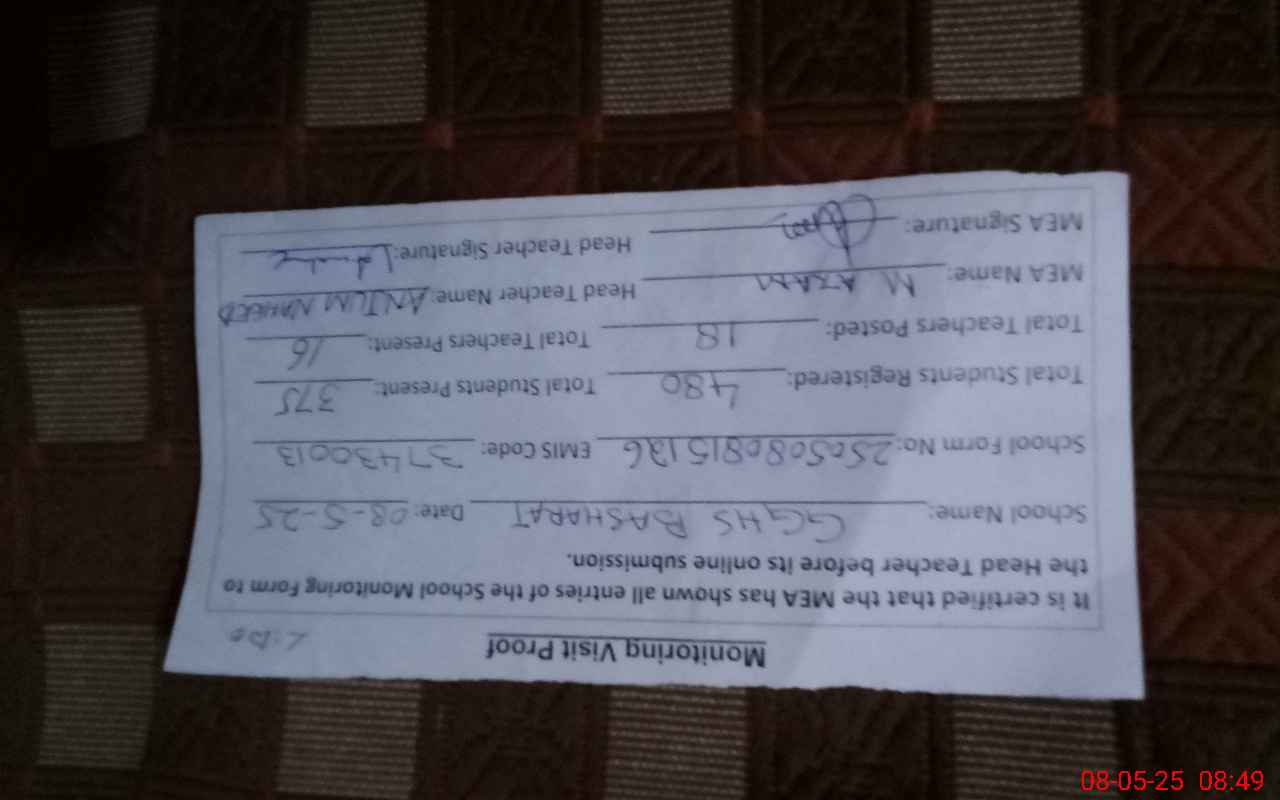 Monitoring Visit Proof
It is certified that the MEA has shown all entries of the School Monitoring Form to
the Head Teacher before its online submission.
School Name: GGHS BASHARAT Date: 08-5-25
School Form No: 2505080815126 EMIS Code: 37430013
Total Students Registered: 480 Total Students Present: 375
Total Teachers Posted: 18 Total Teachers Present: 16
MEA Name: M AZAM Head Teacher Name: ANJUM NAHEED
MEA Signature: Head Teacher Signature:
08-05-25 08:49